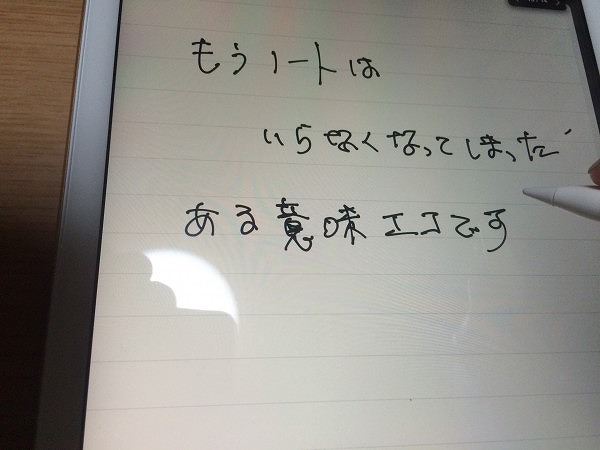 もうノートは
いらなくなってしまった
ある意味エコです